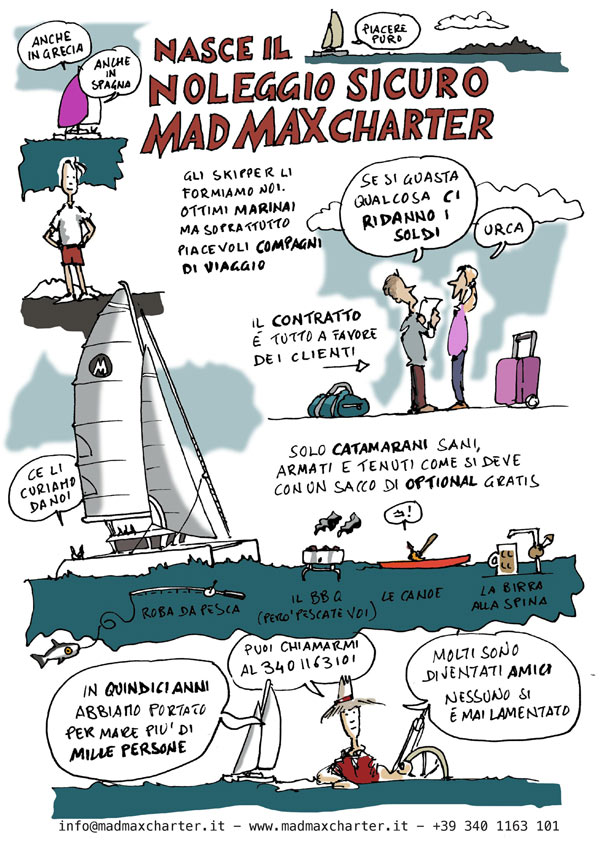 ANCHE
IN GRECIA
ANCHE
IN
SPAGNA
NASCE IL
NOLEGGIO SICURO
MAD MAX CHARTER
PIACERE
PURO
GLI SKIPPER LI
FORMIAMO NOI.
OTTIMI MARINAI
MA SOPRATTUTTO
PIACEVOLI COMPAGNI
DI VIAGGIO
SE SI GUASTA
QUALCOSA CI
RIDANNO I
SOLDI
URCA
IL CONTRATTO
É TUTTO A FAVORE
DEI CLIENTI
M
SOLO CATAMARANI SANI,
ARMATI E TENUTI COME SI DEVE
CON UN SACCO DI OPTIONAL GRATIS
CE LI
CURIAMO
DA NOI
ROBA DA PESCA
IL BBQ
(PERO' PESCATE VOI)
LE CANOE
LA BIRRA
ALLA SPINA
IN QUINDICI ANNI
ABBIAMO PORTATO
PER MARE PIU' DI
MILLE PERSONE
PUOI CHIAMARMI
AL 340 1163101
MOLTI SONO
DIVENTATI AMICI
NESSUNO SI
É MAI LAMENTATO
info@madmaxcharter.it – www.madmaxcharter.it – +39 340 1163 101